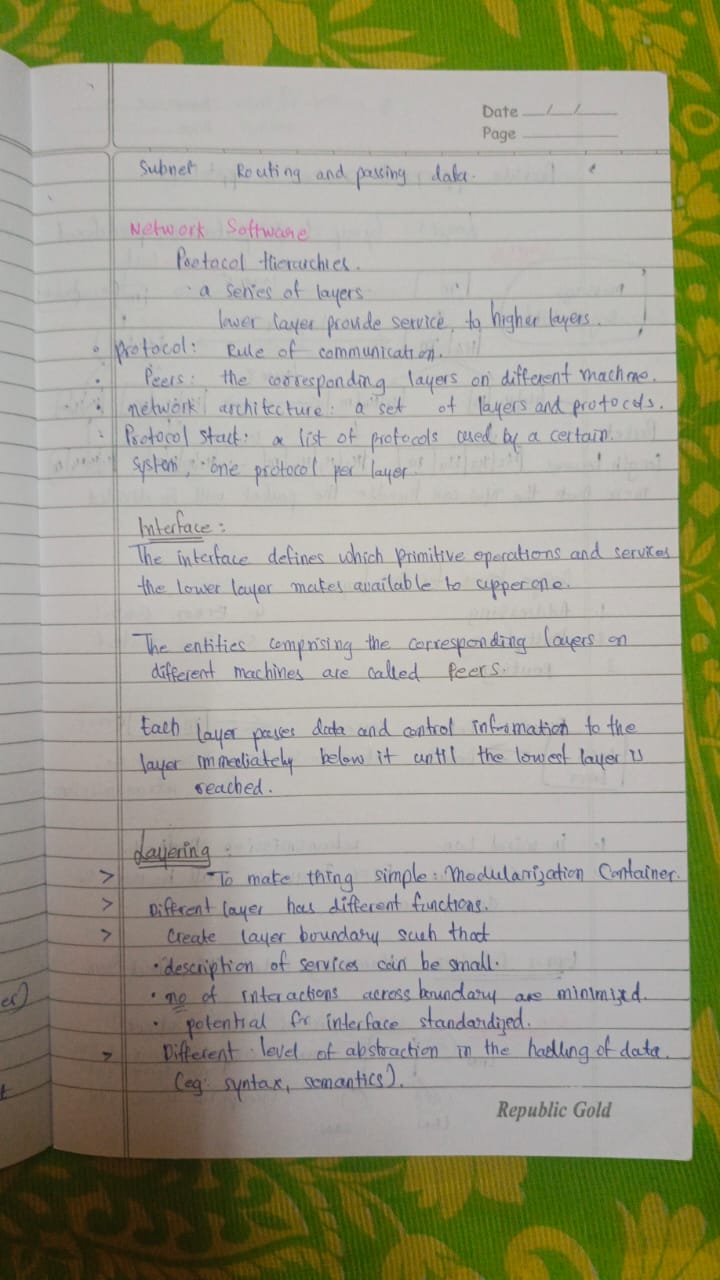 Date __/__/__
Page
Subnet : Routing and passing data.
Network Software
Protocol Hierarchies.
· a series of layers
lower layer provide service, to higher layers.
· Protocol: Rule of communication.
· Peers: the corresponding layers on different machne.
· network architecture: a set of layers and protocols.
· Protocol stack: a list of protocols used by a certain
system, one protocol per layer
Interface:
The interface defines which primitive operations and services
the lower layer makes available to upper one.
The entities comprising the corresponding layers on
different machines are called Peers.
Each layer passes data and control infromation to the
layer immediately below it until the lowest layer is
reached.
Layering :
> To make thing simple: Modularization Container.
> Different layer has different functions.
> Create layer boundary such that
· description of services can be small.
· no of interactions across boundary are minimized.
· potential for interface standardized.
> Different level of abstraction in the hadling of data.
(eg: syntax, semantics).
es)
Republic Gold